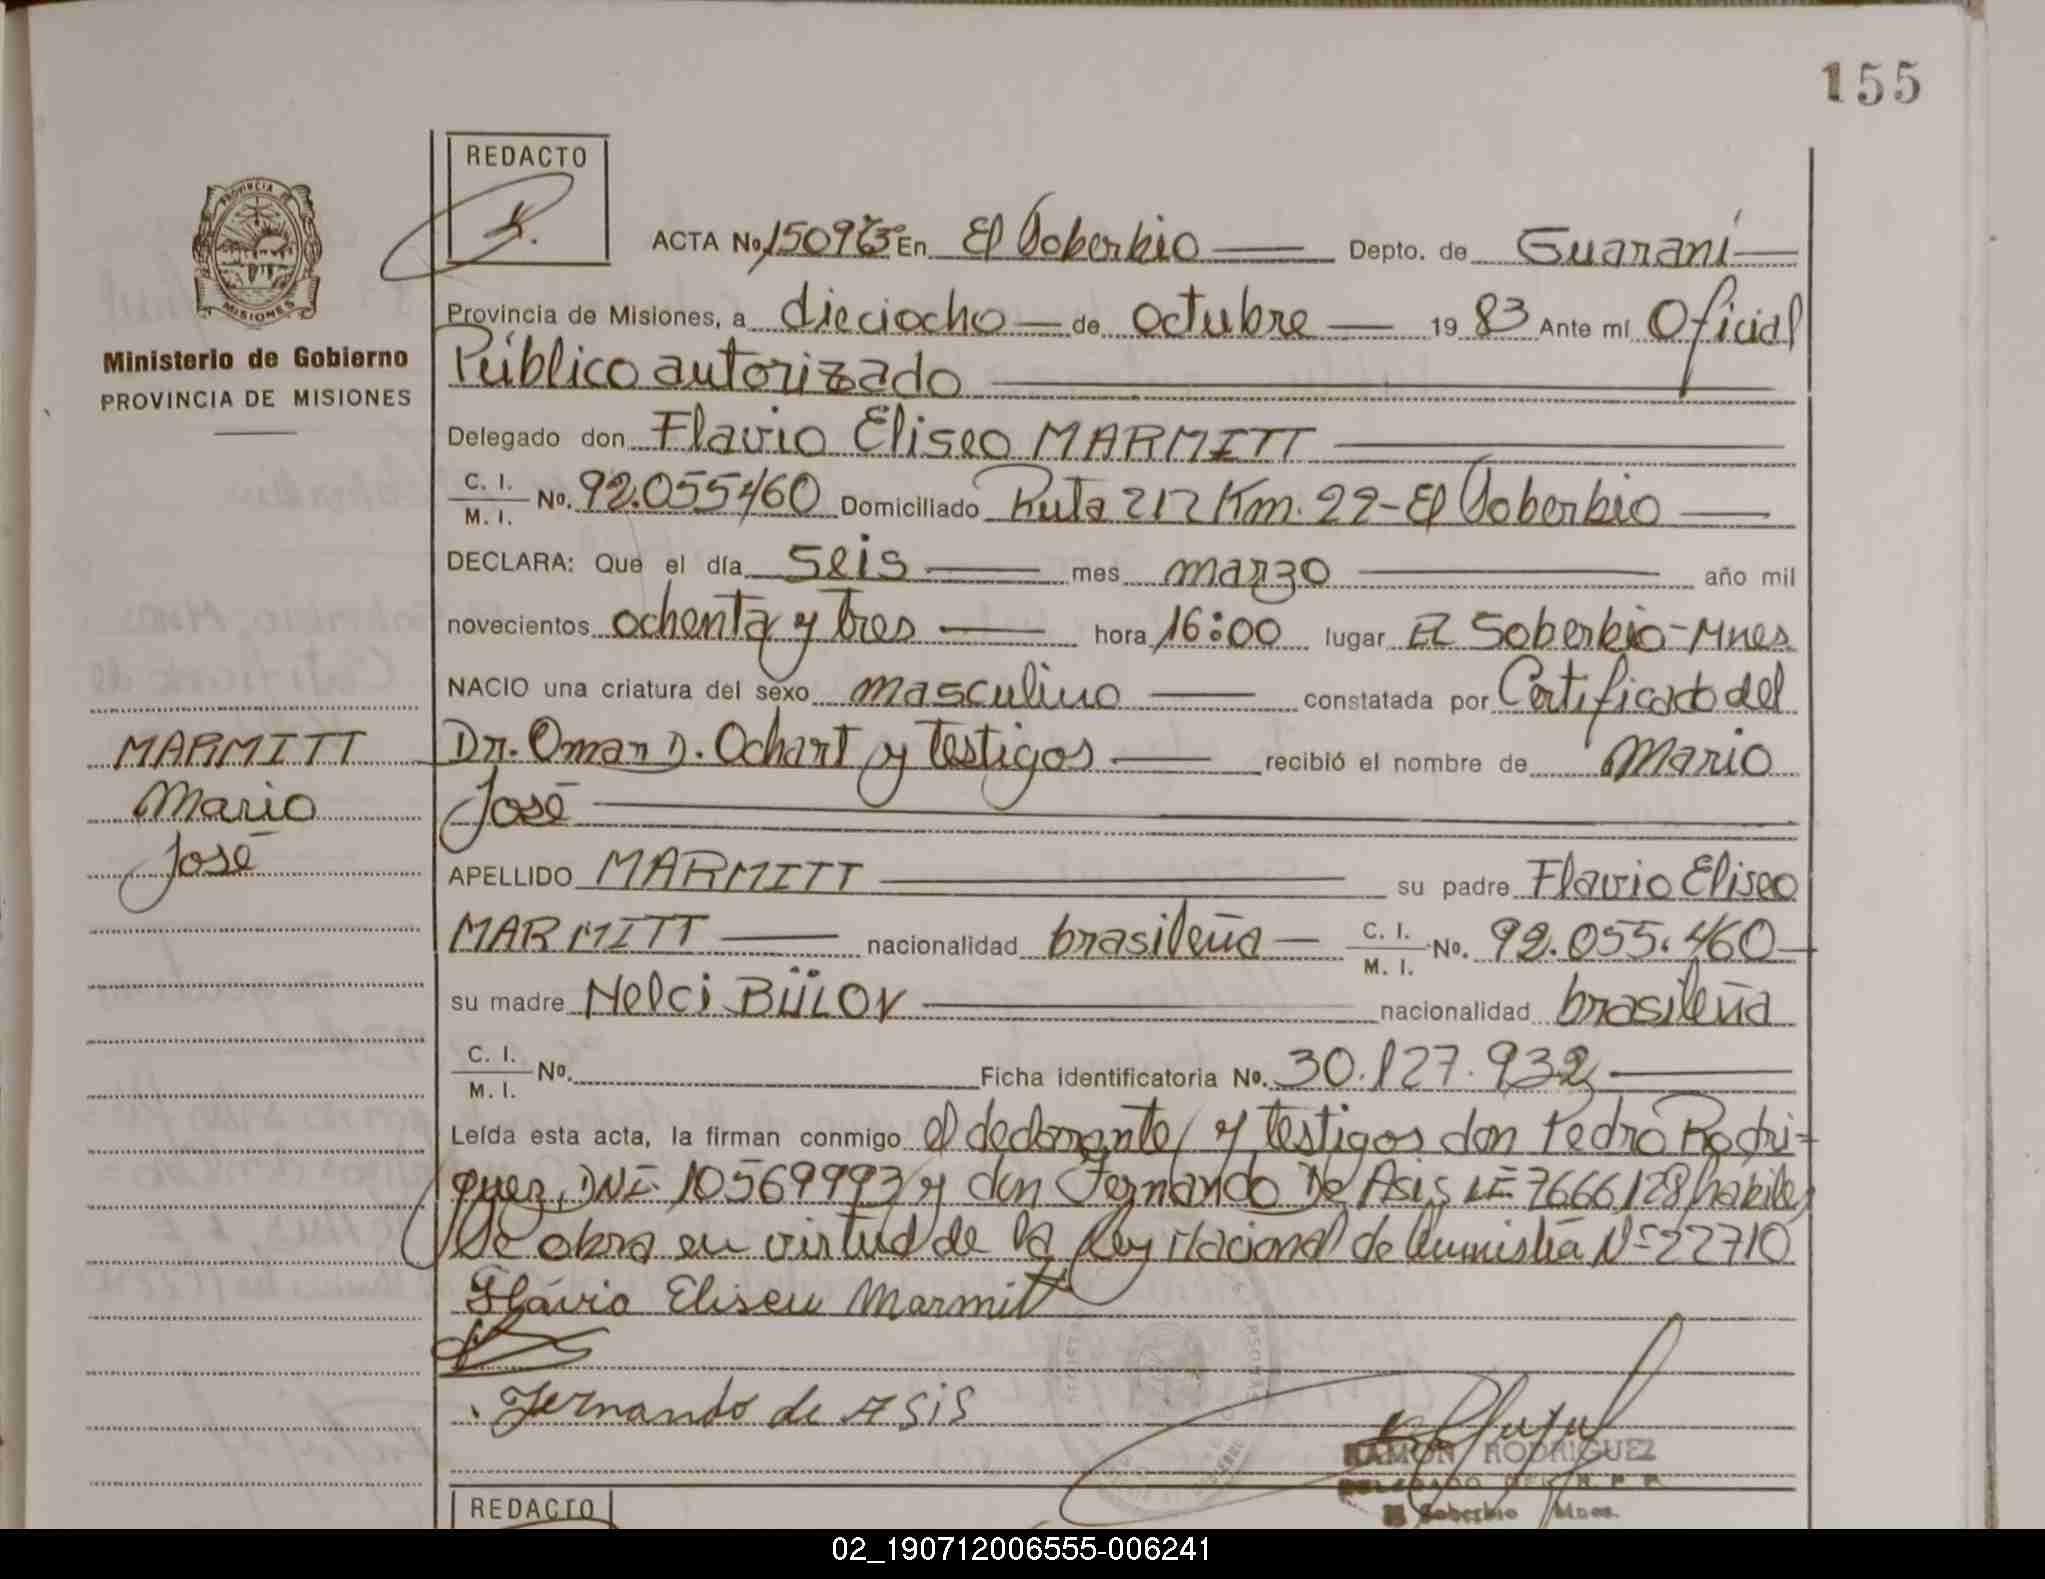 155
REDACTO
PROVINCIA DE
MISIONES
Ministerio de Gobierno
PROVINCIA DE MISIONES
ACTA No En El Soberbio Depto. de Guaraní
Provincia de Misiones, a dieciocho de octubre 19 83 Ante mí Oficial
Público autorizado
Delegado don Flavio Eliseo MARMITT
C. I. / M. I. No. 92.055460 Domiciliado Ruta 212 Km. 22-El Soberbio
DECLARA: Que el día seis mes marzo año mil
novecientos ochenta y tres hora 16:00 lugar El Soberbio-Mnes
NACIO una criatura del sexo masculino constatada por Certificado del
MARMITT
Mario
José
Dr. Omar D. Ochart y testigos recibió el nombre de Mario
José
APELLIDO MARMITT su padre Flavio Eliseo
MARMITT nacionalidad brasileña C. I. / M. I. No. 92.055.460
su madre Nelci BÜLOV nacionalidad brasileña
C. I. / M. I. No. Ficha identificatoria No. 30.127.932
Leída esta acta, la firman conmigo el declarante y testigos don Pedro Rodri-
guez, DNI- 10569993 y don Fernando De Asis LE- 7666128 habiles
De obra en virtud de la Ley Nacional de Amnistía Nº 22710
Flávio Eliseu Marmitt
Fernando de Asis
RAMON RODRIGUEZ
DELEGADO DEL R. P. P.
El Soberbio Mnes.
REDACTO
02_190712006555-006241